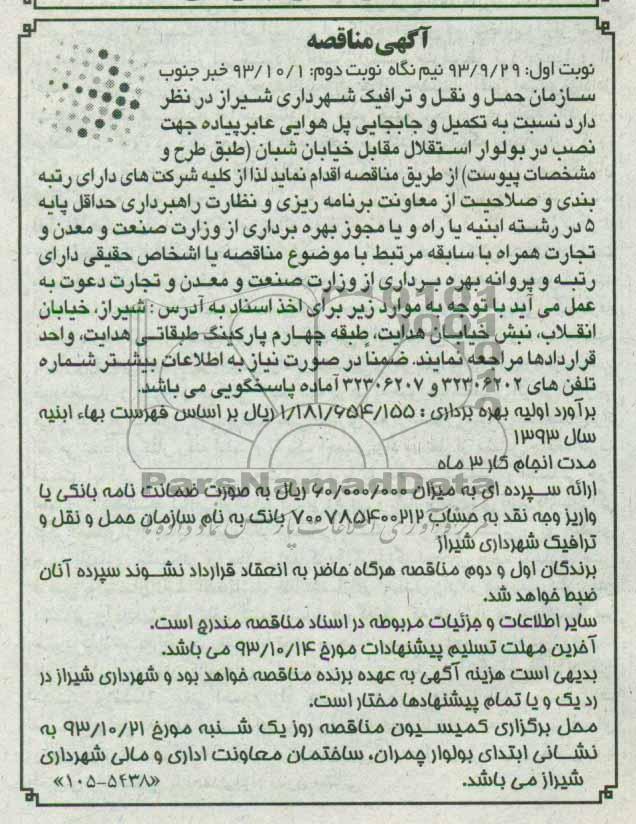 آگهی مناقصه
نوبت اول: ۹۳/۹/۲۹ نیم نگاه نوبت دوم: ۹۳/۱۰/۱ خبر جنوب
سازمان حمل و نقل و ترافیک شهرداری شیراز در نظر
دارد نسبت به تکمیل و جابجایی پل هوایی عابرپیاده جهت
نصب در بولوار استقلال مقابل خیابان شبان (طبق طرح و
مشخصات پیوست) از طریق مناقصه اقدام نماید لذا از کلیه شرکت های دارای رتبه
بندی و صلاحیت از معاونت برنامه ریزی و نظارت راهبرداری حداقل پایه
۵ در رشته ابنیه یا راه و یا مجوز بهره برداری از وزارت صنعت و معدن و
تجارت همراه با سابقه مرتبط با موضوع مناقصه یا اشخاص حقیقی دارای
رتبه و پروانه بهره برداری از وزارت صنعت و معدن و تجارت دعوت به
عمل می آید با توجه به موارد زیر برای اخذ اسناد به آدرس : شیراز، خیابان
انقلاب، نبش خیابان هدایت، طبقه چهارم پارکینگ طبقاتی هدایت، واحد
قراردادها مراجعه نمایند. ضمناً در صورت نیاز به اطلاعات بیشتر شماره
تلفن های ۳۲۳۰۶۲۰۲ و ۳۲۳۰۶۲۰۷ آماده پاسخگویی می باشد.
برآورد اولیه بهره برداری : ۱/۱۸۱/۶۵۴/۱۵۵ ریال بر اساس فهرست بهاء ابنیه
سال ۱۳۹۳
مدت انجام کار ۳ ماه
ParsNamadData
ارائه سپرده ای به میزان ۶۰/۰۰۰/۰۰۰ ریال به صورت ضمانت نامه بانکی یا
واریز وجه نقد به حساب ۷۰۰۷۸۵۴۰۰۲۱۲ بانک به نام سازمان حمل و نقل و
ترافیک شهرداری شیراز
برندگان اول و دوم مناقصه هرگاه حاضر به انعقاد قرارداد نشوند سپرده آنان
ضبط خواهد شد.
سایر اطلاعات و جزئیات مربوطه در اسناد مناقصه مندرج است.
آخرین مهلت تسلیم پیشنهادات مورخ ۹۳/۱۰/۱۴ می باشد.
بدیهی است هزینه آگهی به عهده برنده مناقصه خواهد بود و شهرداری شیراز در
رد یک و یا تمام پیشنهادها مختار است.
محل برگزاری کمیسیون مناقصه روز یک شنبه مورخ ۹۳/۱۰/۲۱ به
نشانی ابتدای بولوار چمران، ساختمان معاونت اداری و مالی شهرداری
شیراز می باشد. «۱۰۵-۵۴۳۸»